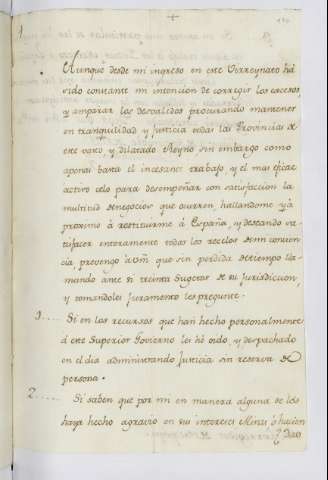 Aunque desde mi ingreso en este Virreynato há
sido constante mi intencion de corregir los excesos,
y amparar los desvalidos procurando mantener
en tranquilidad y Justicia todas las Provincias de
este vasto y dilatado Reyno sin embargo como
apenas basta el incesante trabajo, y el mas eficaz
activo celo para desempeñar con satisfaccion la
multitud de negocios que ocurren, hallandome yá
proximo á restituirme á España, y deseando sa-
tisfacer enteramente todos los recelos de mi concien
cia prevengo á Vm que sin perdida de tiempo lla-
mando ante si treinta Sugetos de su Jurisdiccion,
y tomandoles Juramento les pregunte.
1.... Si en los recursos que han hecho personalmente
á este Superior Govierno les hé oido, y despachado
en el dia administrando Justicia sin reserva de
persona.
2.... Si saben que por mi en manera alguna se les
haya hecho agravio en sus intereses Minas ó hacien
das